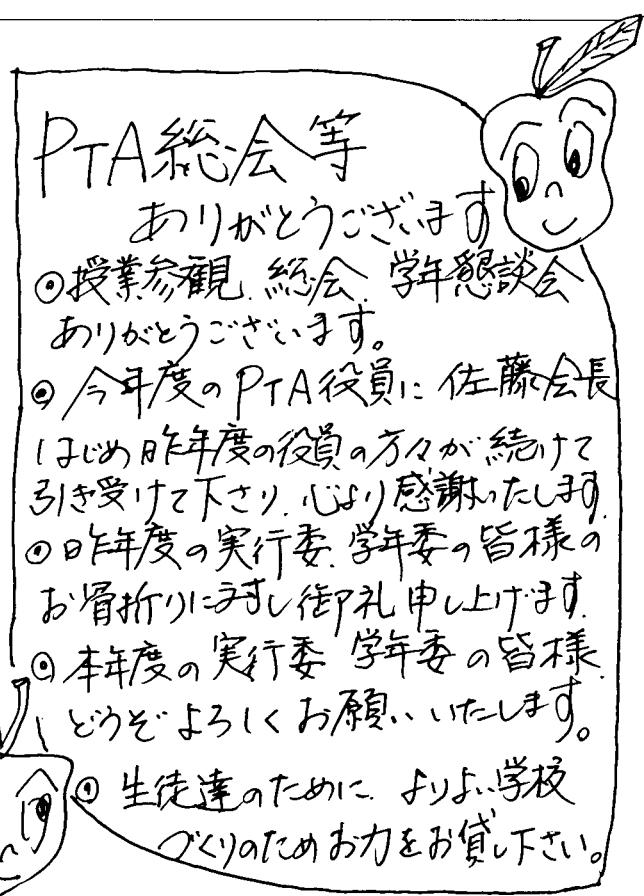 PTA総会等
ありがとうございます
◎授業参観、総会、学年懇談会
ありがとうございます。
◎今年度のPTA役員に佐藤会長
はじめ昨年度の役員の方々が続けて
引き受けて下さり、心より感謝いたします。
◎昨年度の実行委、学年委の皆様の
お骨折りに対し御礼申し上げます。
◎本年度の実行委 学年委の皆様
どうぞよろしくお願いいたします。
◎生徒達のために、よりよい学校
づくりのためお力をお貸し下さい。